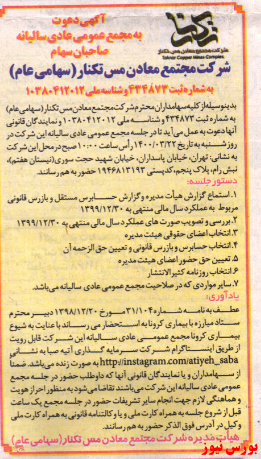 تکنار
شرکت مجتمع معادن مس تکنار
Taknar Copper Mines Complex
آگهی دعوت
به مجمع عمومی عادی سالیانه
صاحبان سهام
شرکت مجتمع معادن مس تکنار (سهامی عام)
به شماره ثبت ۴۳۴۸۷۳ و شناسه ملی ۱۰۳۸۰۴۱۲۰۱۲
بدینوسیله از کلیه سهامداران محترم شرکت مجتمع معادن مس تکنار (سهامی عام)
به شماره ثبت ۴۳۴۸۷۳ و شناسه ملی ۱۰۳۸۰۴۱۲۰۱۲ و نمایندگان قانونی
آنها دعوت به عمل می آید تا در جلسه مجمع عمومی عادی سالیانه این شرکت در
روز شنبه به تاریخ ۱۴۰۰/۰۳/۲۲ رأس ساعت ۱۰:۰۰ صبح در محل این شرکت
به نشانی: تهران، خیابان پاسداران، خیابان شهید حجت سوری (نیستان هفتم)،
نبش رام، پلاک پنجم، کدپستی ۱۹۴۶۸۱۳۱۹۳ حضور به هم رسانند.
دستور جلسه:
۱. استماع گزارش هیأت مدیره و گزارش حسابرس مستقل و بازرس قانونی
مربوط به عملکرد سال مالی منتهی به ۱۳۹۹/۱۲/۳۰
۲. بررسی و تصویب صورت های عملکرد سال مالی منتهی به ۱۳۹۹/۱۲/۳۰
۳. انتخاب اعضای حقوقی هیئت مدیره
۴. انتخاب حسابرس و بازرس قانونی و تعیین حق الزحمه آن
۵. تعیین حق حضور اعضای هیئت مدیره
۶. انتخاب روزنامه کثیرالانتشار
۷. سایر مواردی که در صلاحیت مجمع عمومی عادی سالیانه می باشد.
یادآوری:
عطف به نامه شماره ۳۱/۱۰۴ مورخ ۱۳۹۸/۱۲/۲۰ دبیر محترم
ستاد مبارزه با بیماری کرونا به استحضار می رساند با عنایت به شیوع
بیماری کرونا مجمع عمومی عادی سالیانه این شرکت قابل رویت
از طریق اینستاگرام شرکت سرمایه گذاری آتیه صبا به نشانی
http://instagram.com/atiyeh_saba به صورت زنده می باشد. ضمناً
از سهامداران و یا نمایندگان قانونی آنها که داوطلب حضور در جلسه مجمع
عمومی عادی سالیانه این شرکت می باشند تقاضا می شود به منظور احراز هویت
و هماهنگی لازم جهت انجام سایر تشریفات حضور در جلسه مجمع یک ساعت
قبل از شروع جلسه به همراه کارت ملی و یا وکالتنامه قانونی به همراه کارت ملی
وکیل در آدرس فوق الذکر حضور به هم رسانند.
هیأت مدیره شرکت مجتمع معادن مس تکنار (سهامی عام)
بورس نیوز